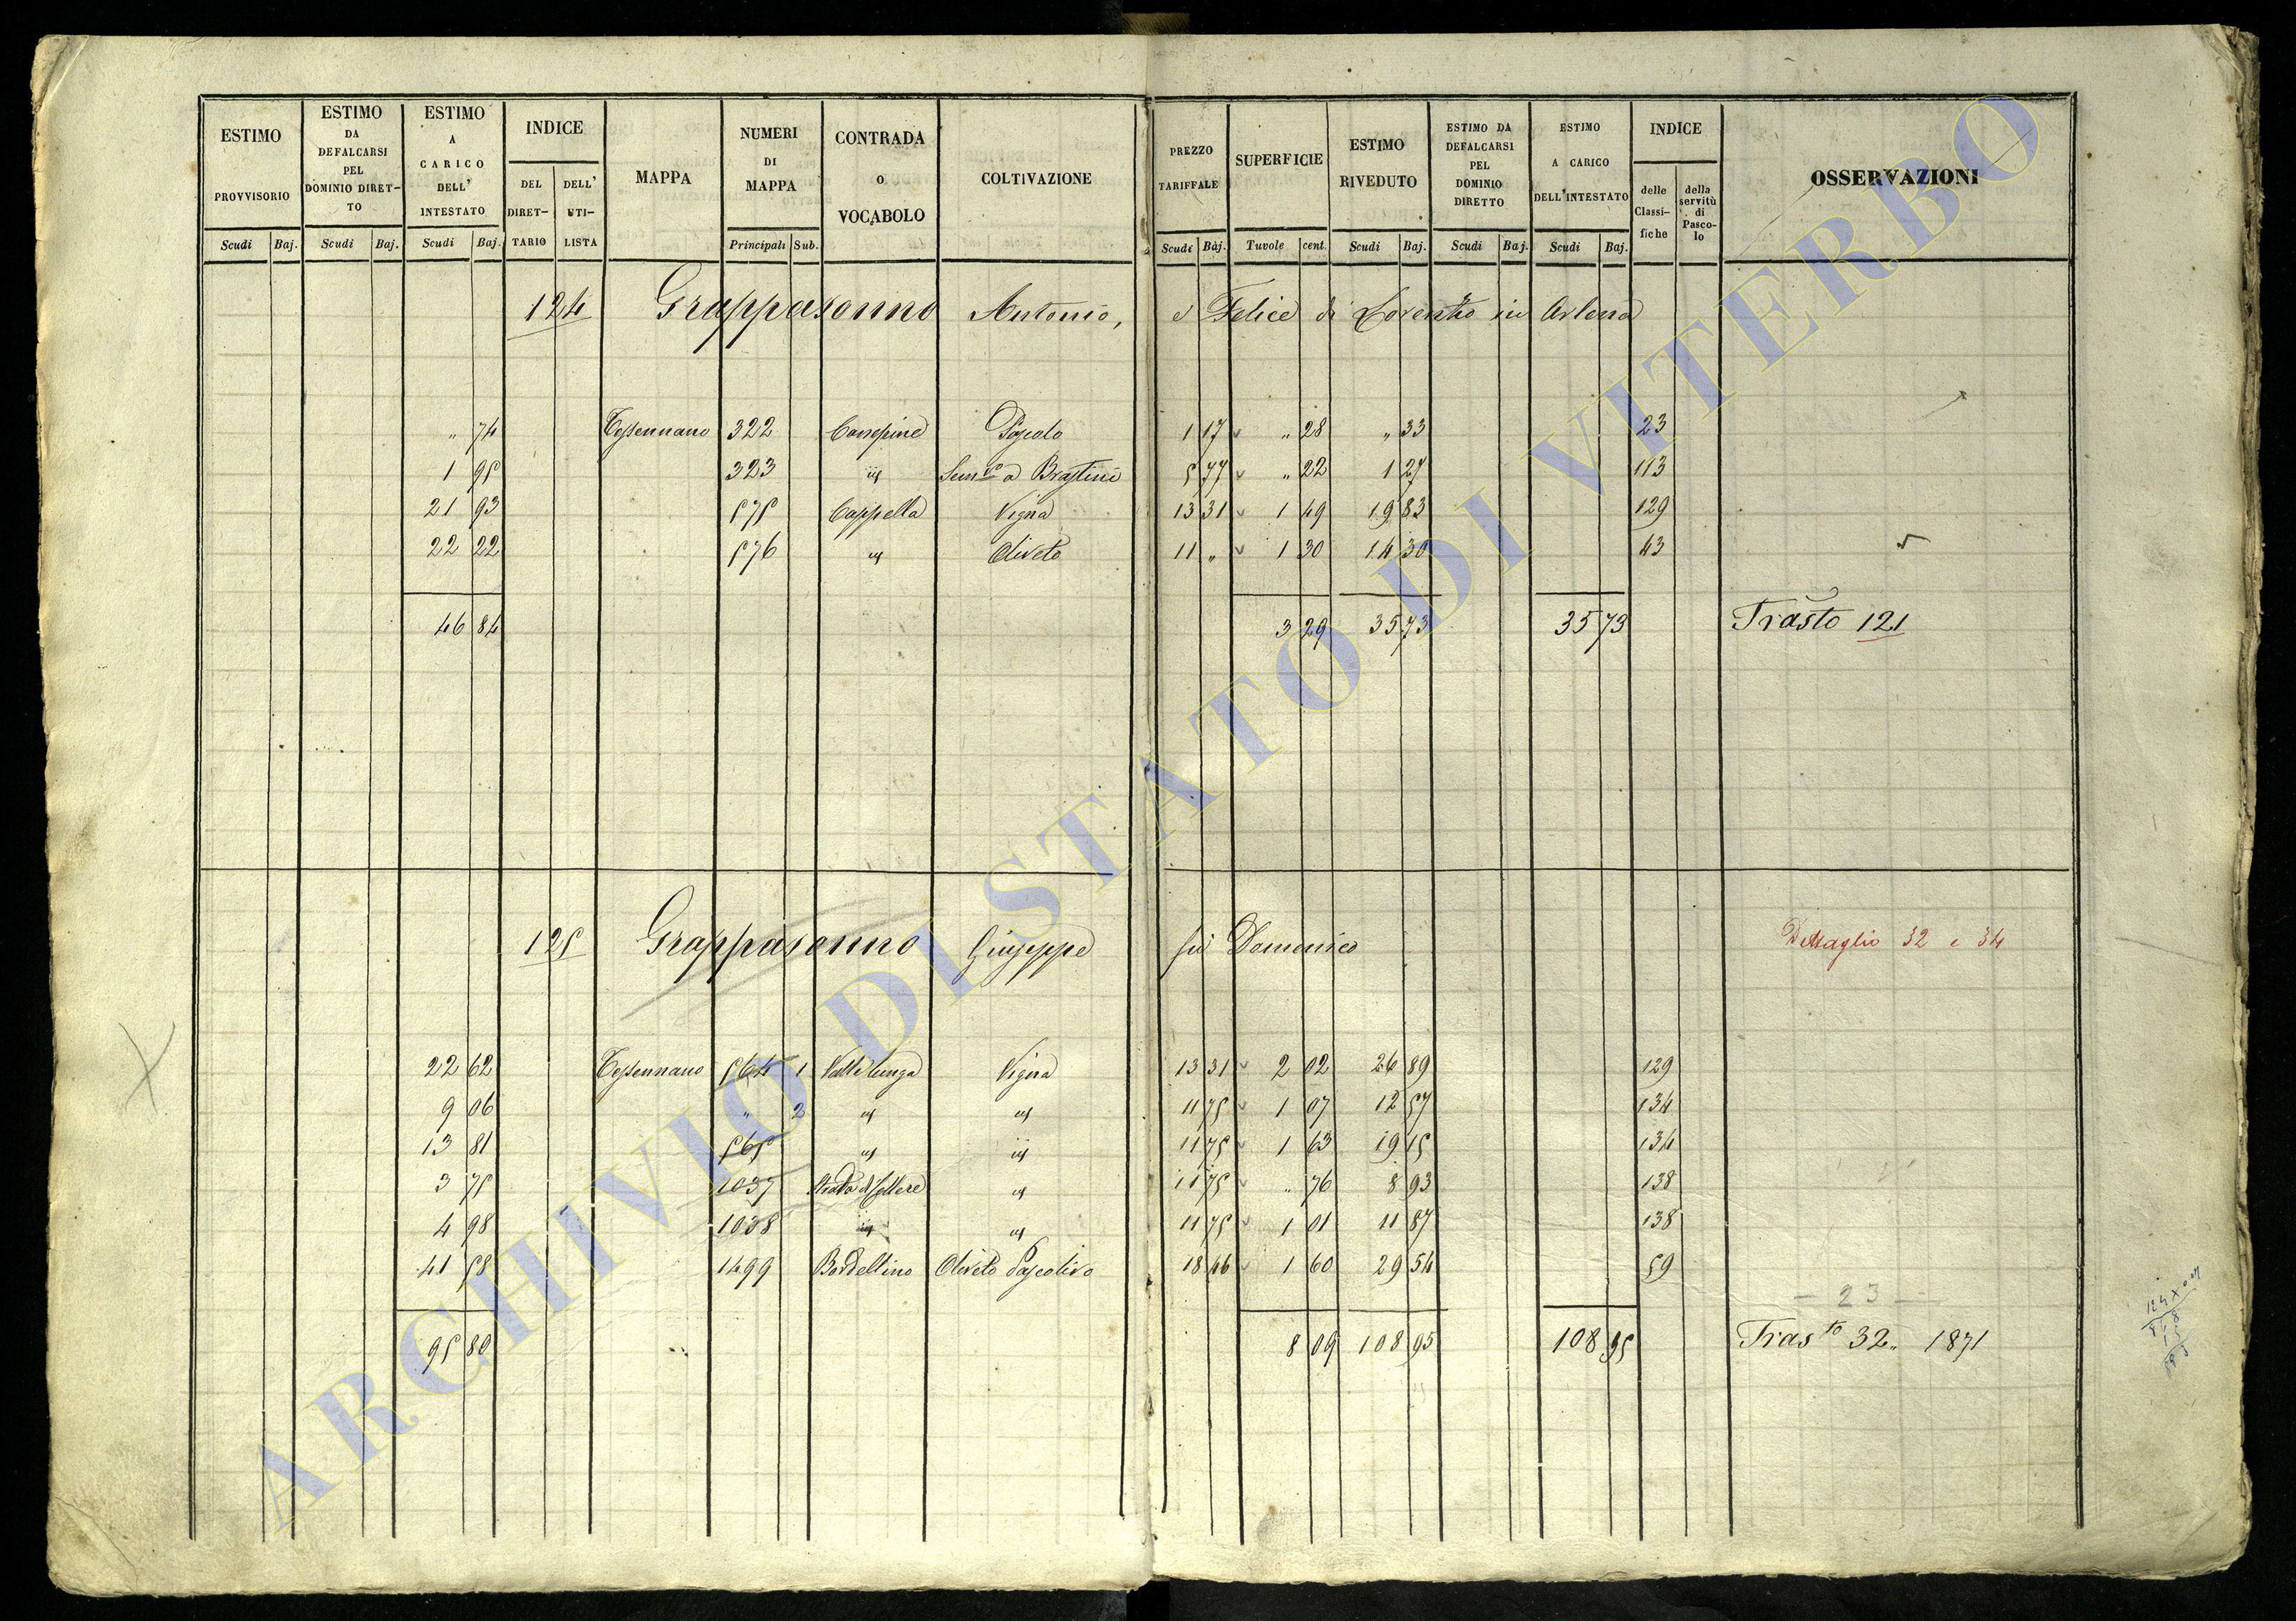 ESTIMO PROVVISORIO Scudi Baj.
ESTIMO DA DEFALCARSI PEL DOMINIO DIRETTO Scudi Baj.
ESTIMO A CARICO DELL' INTESTATO Scudi Baj.
INDICE DEL DIRETTARIO DELL' UTILISTA
MAPPA
NUMERI DI MAPPA Principali Sub.
CONTRADA O VOCABOLO
COLTIVAZIONE
PREZZO TARIFFALE Scudi Baj.
SUPERFICIE Tavole cent.
ESTIMO RIVEDUTO Scudi Baj.
ESTIMO DA DEFALCARSI PEL DOMINIO DIRETTO Scudi Baj.
ESTIMO A CARICO DELL'INTESTATO Scudi Baj.
INDICE delle Classifiche della servitù di Pascolo
OSSERVAZIONI
124 Grappasonno Antonio, e Felice di Lorenzo in Arlena
" 74 Tessennano 322 Pascolo 1 17 " 28 " 33 23
1 95 323 id Sem.vo a Brastini 5 77 " 22 1 27 113
21 93 575 Cappella Vigna 13 31 1 49 19 83 129
22 22 576 id Oliveto 11 " 1 30 14 30 43
46 84 3 29 35 73 35 73 Trasto 121
125 Grappasonno Giuseppe fu Domenico Dettaglio 32 e 34
22 62 Tessennano 564 1 Valle lunga Vigna 13 31 2 02 26 89 129
9 06 " 2 id id 11 75 1 07 12 57 134
13 81 565 id id 11 75 1 63 19 15 134
3 75 1037 id 11 75 " 76 8 93 138
4 98 1038 id id 11 75 1 01 11 87 138
41 58 1499 Bordellino Oliveto Pascolivo 18 46 1 60 29 54 59
– 23 –
95 80 8 09 108 95 108 95 Trasto 32 " 1871
ARCHIVIO DI STATO DI VITERBO